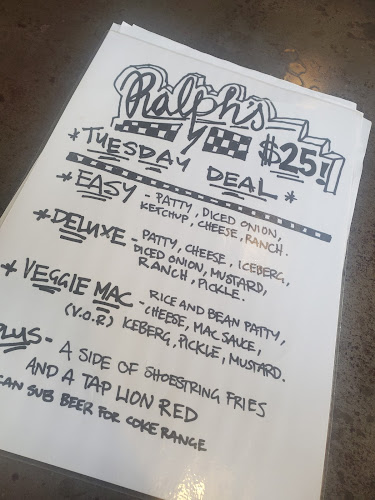 Ralph's
$25!
* TUESDAY DEAL *
* EASY - PATTY, DICED ONION,
KETCHUP, CHEESE, RANCH.
* DELUXE - PATTY, CHEESE, ICEBERG,
DICED ONION, MUSTARD,
RANCH, PICKLE.
* VEGGIE MAC - RICE AND BEAN PATTY,
CHEESE, MAC SAUCE,
(V.O.R) ICEBERG, PICKLE, MUSTARD.
PLUS - A SIDE OF SHOESTRING FRIES
AND A TAP LION RED
CAN SUB BEER FOR COKE RANGE